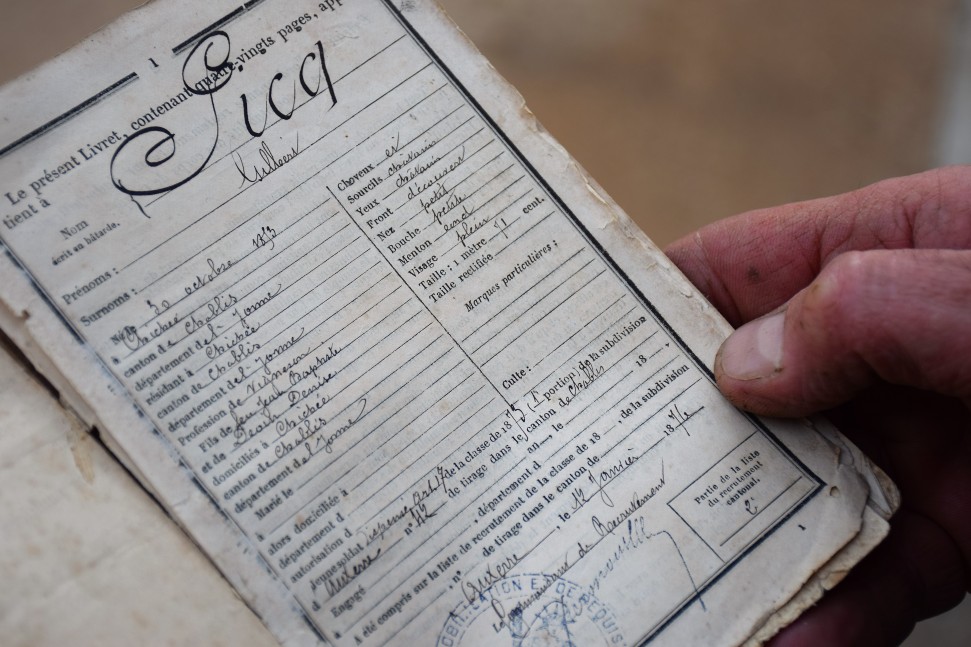 1
Le présent Livret, contenant quatre-vingts pages, app
tient à
Nom Picq
écrit en bâtarde.
Prénoms : Gilbert
Surnoms :
Né le 30 octobre 1853
à Chichée
canton de Chablis
département de l'Yonne
résidant à Chichée
canton de Chablis
département de l'Yonne
Profession de Vigneron
Fils de feu Jean Baptiste
et de Denise
domiciliés à Chichée
canton de Chablis
département de l'Yonne
Marié le
à
alors domiciliée à
département d
autorisation d
Jeune soldat Dispensé Art. 17 de la classe de 1873 (1e portion) de la subdivision
d Auxerre n° de tirage dans le canton de Chablis
Engagé an le 18
à , département d
A été compris sur la liste de recrutement de la classe de 18 , de la subdivision
, n° de tirage dans le canton de
Cheveux et
Sourcils châtains
Yeux châtain
Front découvert
Nez petit
Bouche petite
Menton rond
Visage plein
Taille : 1 mètre 51 cent.
Taille rectifiée
Marques particulières :
Culte :
Auxerre , le 12 Janvier 187
Le Commandant de Recrutement
Partie de la liste
du recrutement
cantonal.
2e
OBILISATION ET DE REQUIS